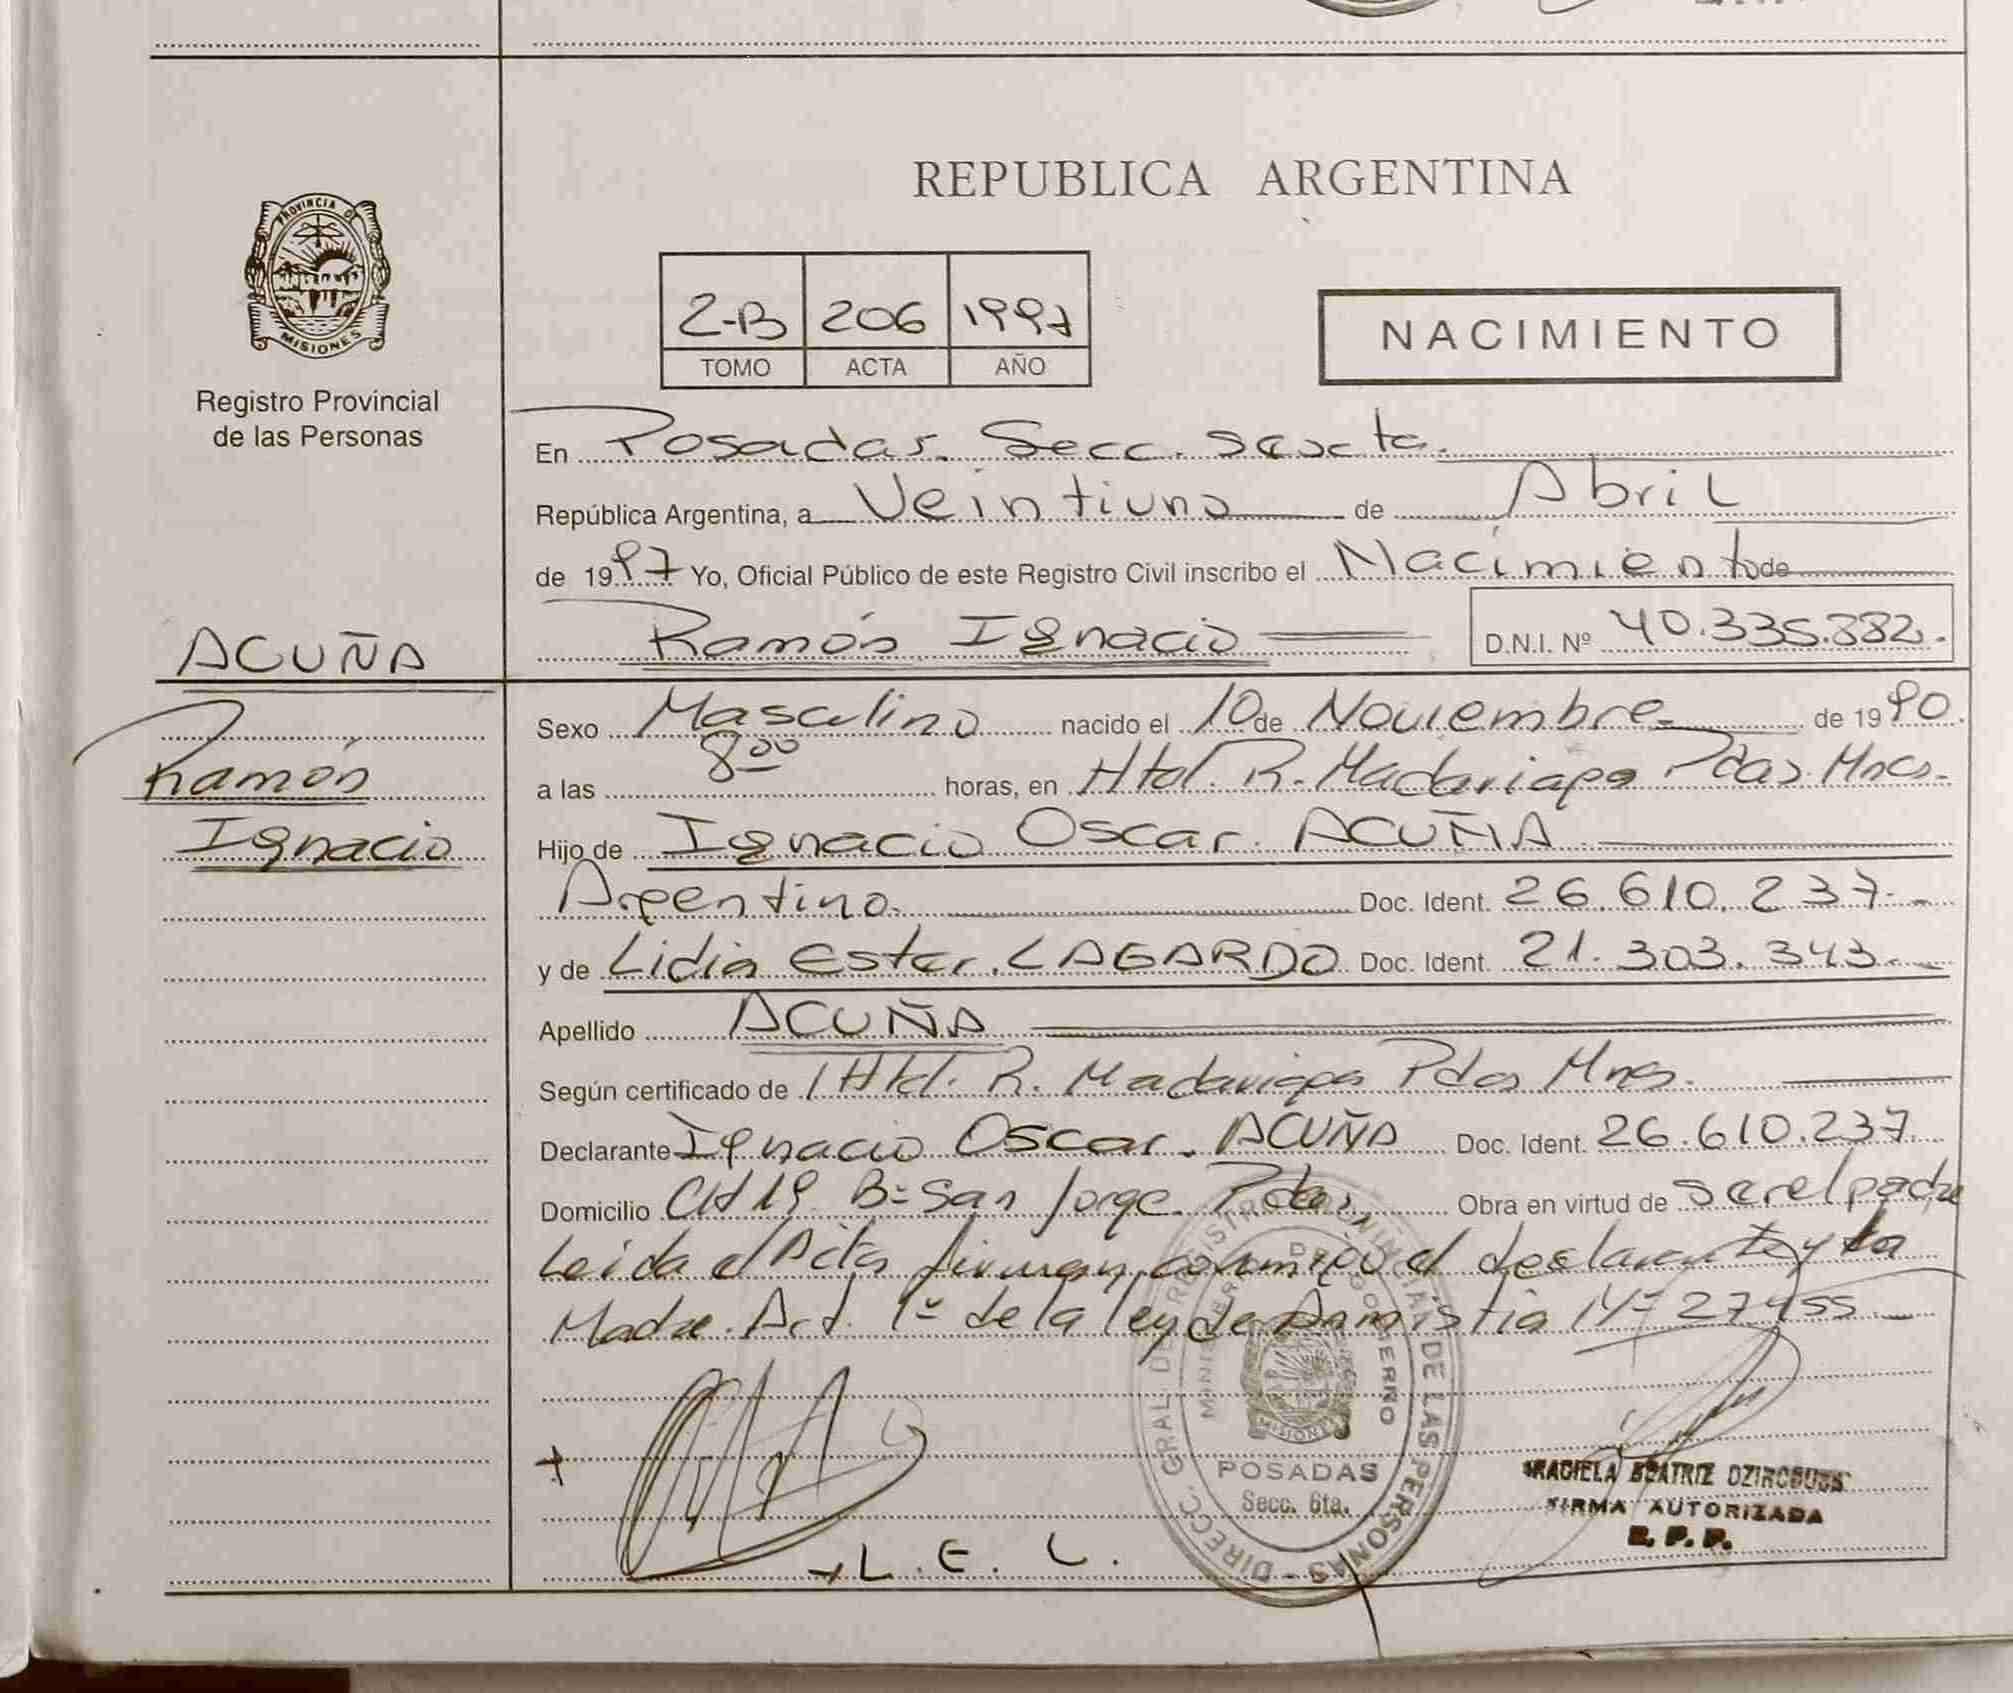 PROVINCIA DE
MISIONES
Registro Provincial
de las Personas
REPUBLICA ARGENTINA
2-B 206 1997
TOMO ACTA AÑO
NACIMIENTO
En Posadas. Secc. sexta.
República Argentina, a Veintiuno de Abril
de 1997 Yo, Oficial Público de este Registro Civil inscribo el Nacimiento de
Ramón Ignacio D.N.I. Nº 40.335.882.
ACUÑA
Ramón
Ignacio
Sexo Masculino nacido el 10 de Noviembre de 1990.
a las 8°° horas, en Htal. R. Madariaga Pdas. Mnes.
Hijo de Ignacio Oscar ACUÑA
Argentino. Doc. Ident. 26.610.237.
y de Lidia Ester. LAGARDO Doc. Ident. 21.303.343.
Apellido ACUÑA
Según certificado de Htal. R. Madariaga Pdas Mnes.
Declarante Ignacio Oscar. ACUÑA Doc. Ident. 26.610.237.
Domicilio CH 19 Bº San Jorge. Pdas, Obra en virtud de ser el padre
Leida el Acta firman conmigo el declarante y la
Madre. Art. 1º de la ley de Amnistia Nº 27455
DIRECC. GRAL. DE REGISTRO PROVINCIAL DE LAS PERSONAS
MINISTERIO DE GOBIERNO
MISIONES
POSADAS
Secc. 6ta.
L. E. L.
GRACIELA BEATRIZ
FIRMA AUTORIZADA
R. P. P.